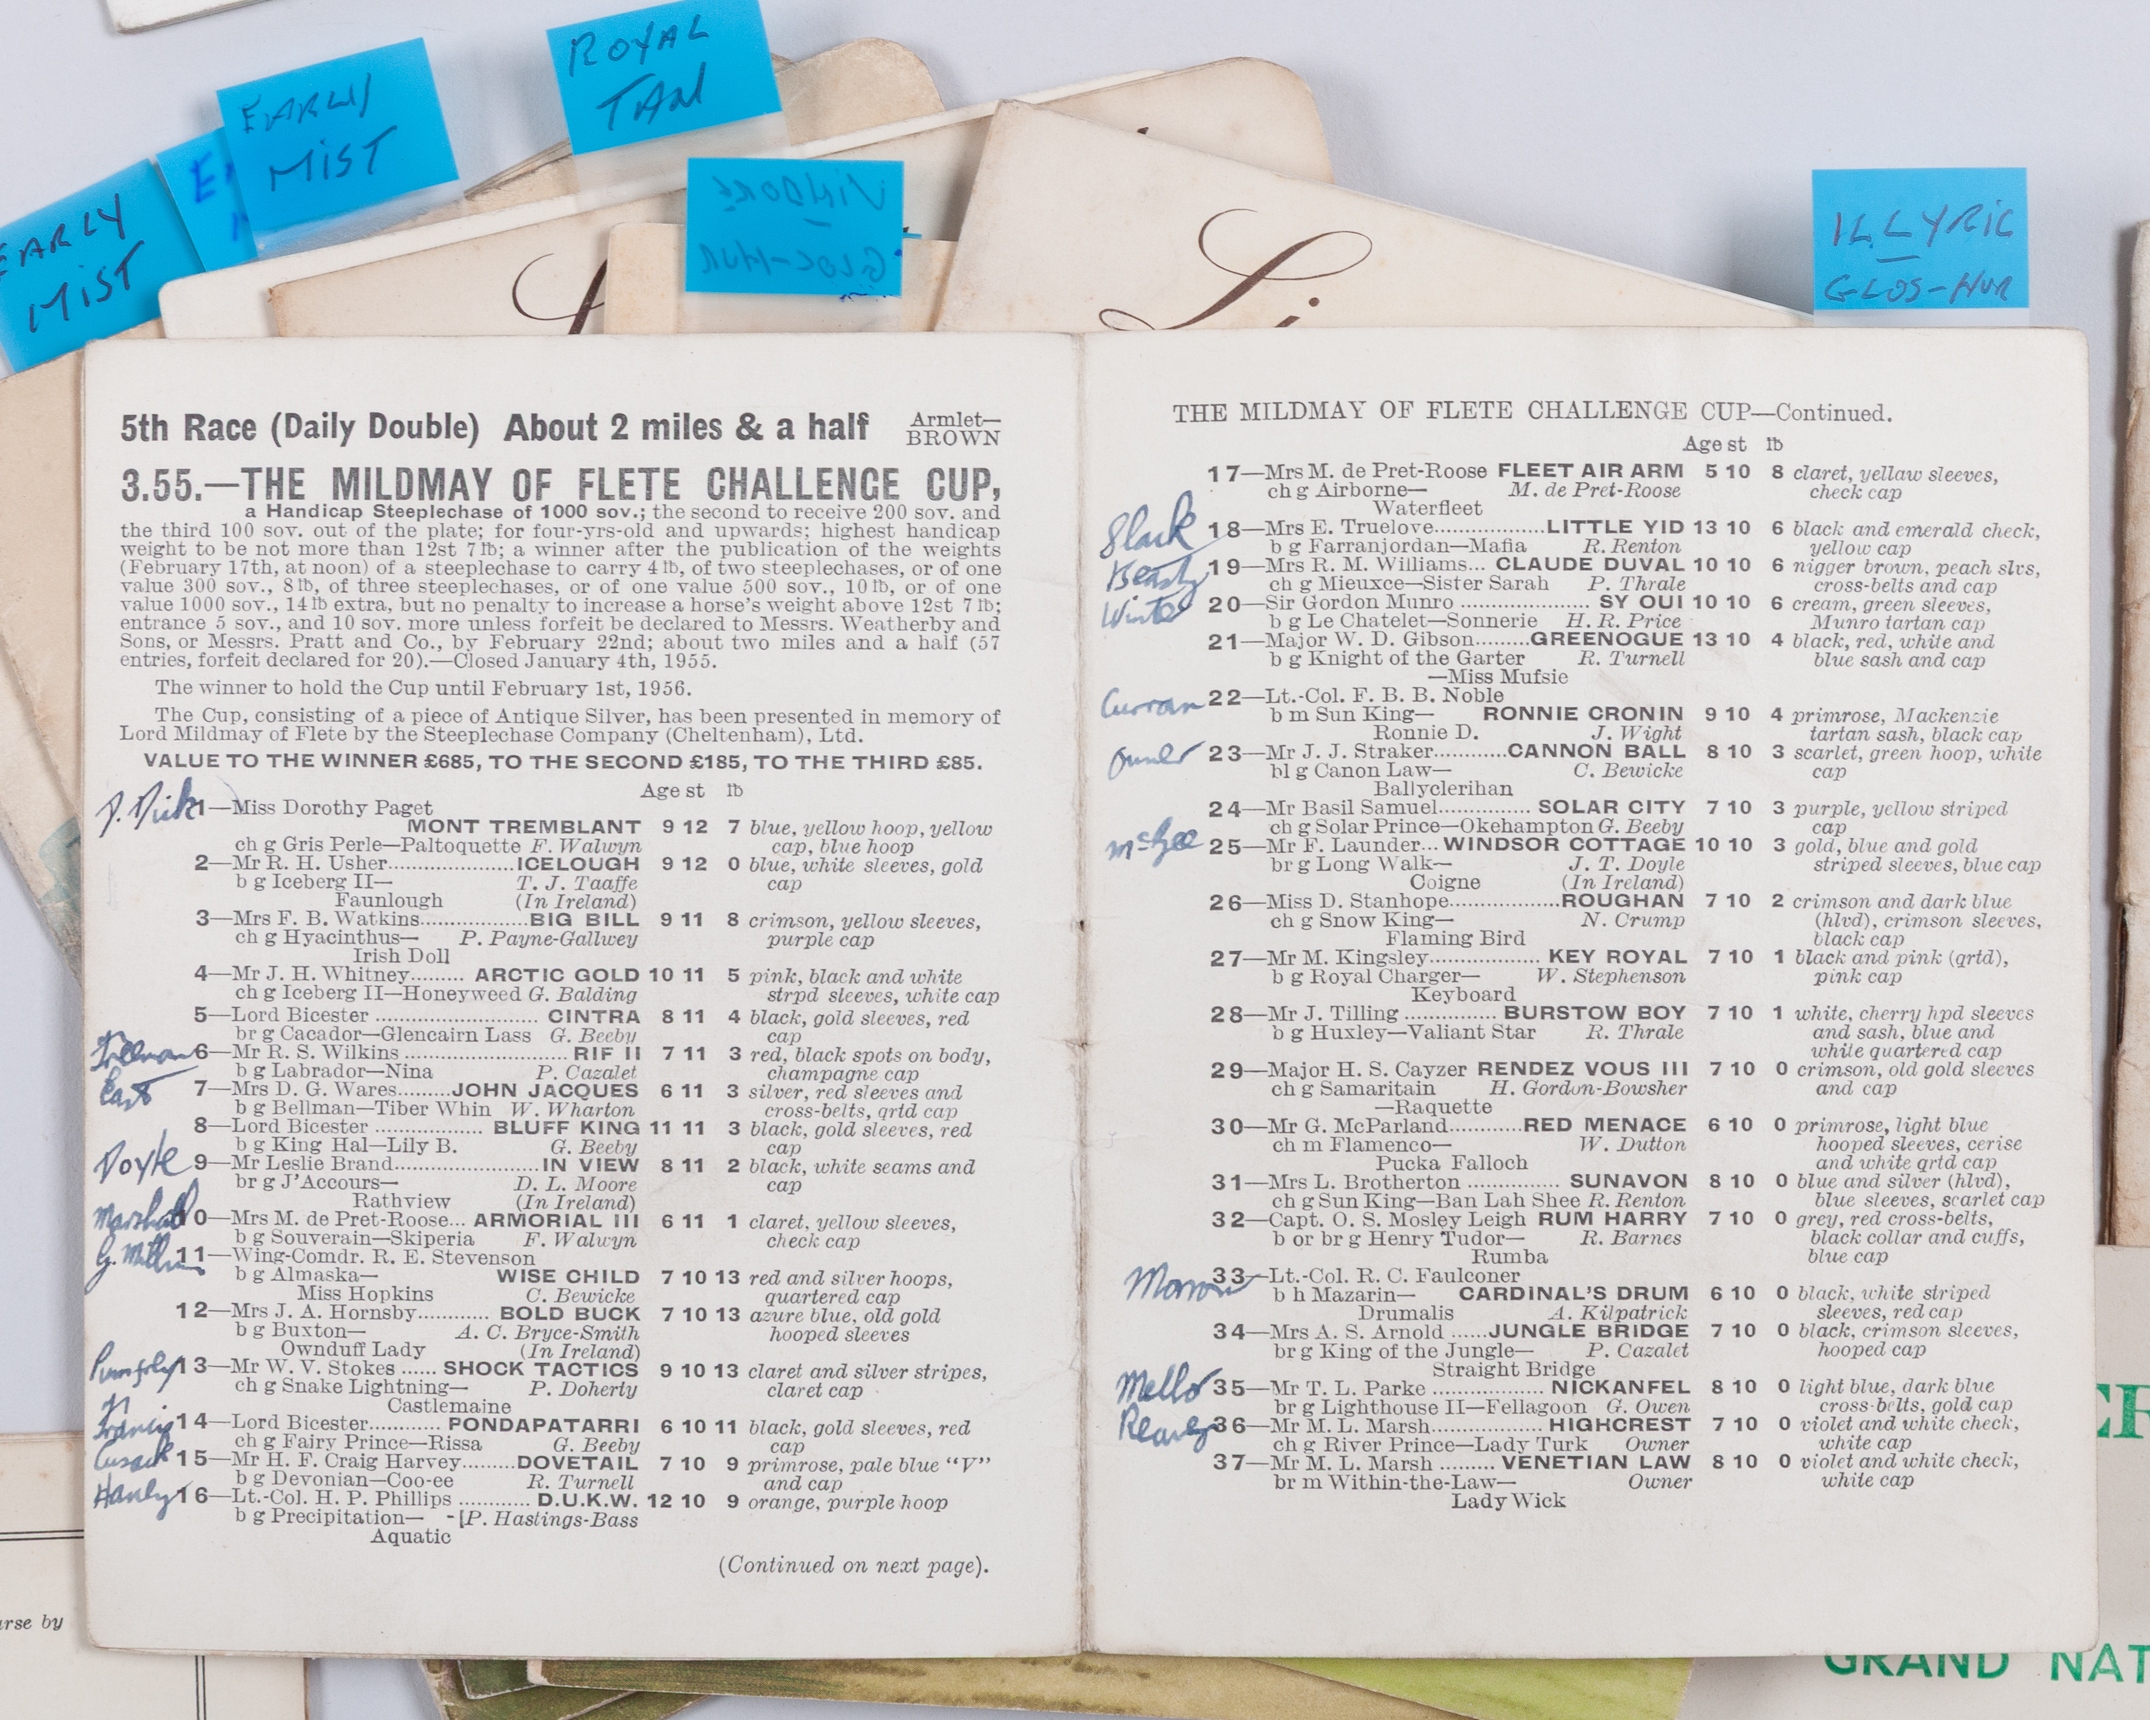 EARLY
MIST
E
EARLY
MIST
ROYAL
TAN
VINDORE
GLOC-HUR
Li
ILLYRIC
GLOS-HUR
5th Race (Daily Double) About 2 miles & a half Armlet—
BROWN
3.55.—THE MILDMAY OF FLETE CHALLENGE CUP,
a Handicap Steeplechase of 1000 sov.; the second to receive 200 sov. and
the third 100 sov. out of the plate; for four-yrs-old and upwards; highest handicap
weight to be not more than 12st 7 lb; a winner after the publication of the weights
(February 17th, at noon) of a steeplechase to carry 4 lb, of two steeplechases, or of one
value 300 sov., 8 lb, of three steeplechases, or of one value 500 sov., 10 lb, or of one
value 1000 sov., 14 lb extra, but no penalty to increase a horse's weight above 12st 7 lb;
entrance 5 sov., and 10 sov. more unless forfeit be declared to Messrs. Weatherby and
Sons, or Messrs. Pratt and Co., by February 22nd; about two miles and a half (57
entries, forfeit declared for 20).—Closed January 4th, 1955.
The winner to hold the Cup until February 1st, 1956.
The Cup, consisting of a piece of Antique Silver, has been presented in memory of
Lord Mildmay of Flete by the Steeplechase Company (Cheltenham), Ltd.
VALUE TO THE WINNER £685, TO THE SECOND £185, TO THE THIRD £85.
Age st lb
D. Dick 1—Miss Dorothy Paget
MONT TREMBLANT 9 12 7 blue, yellow hoop, yellow
ch g Gris Perle—Paltoquette F. Walwyn cap, blue hoop
2—Mr R. H. Usher......................ICELOUGH 9 12 0 blue, white sleeves, gold
b g Iceberg II— T. J. Taaffe cap
Faunlough (In Ireland)
3—Mrs F. B. Watkins...................BIG BILL 9 11 8 crimson, yellow sleeves,
ch g Hyacinthus— P. Payne-Gallwey purple cap
Irish Doll
4—Mr J. H. Whitney......... ARCTIC GOLD 10 11 5 pink, black and white
ch g Iceberg II—Honeyweed G. Balding strpd sleeves, white cap
5—Lord Bicester ............................ CINTRA 8 11 4 black, gold sleeves, red
br g Cacador—Glencairn Lass G. Beeby cap
Freeman 6—Mr R. S. Wilkins ............................ RIF II 7 11 3 red, black spots on body,
b g Labrador—Nina P. Cazalet champagne cap
East 7—Mrs D. G. Wares.........JOHN JACQUES 6 11 3 silver, red sleeves and
b g Bellman—Tiber Whin W. Wharton cross-belts, qrtd cap
8—Lord Bicester .................. BLUFF KING 11 11 3 black, gold sleeves, red
b g King Hal—Lily B. G. Beeby cap
Doyle 9—Mr Leslie Brand........................IN VIEW 8 11 2 black, white seams and
br g J'Accours— D. L. Moore cap
Rathview (In Ireland)
Marshall 10—Mrs M. de Pret-Roose... ARMORIAL III 6 11 1 claret, yellow sleeves,
b g Souverain—Skiperia F. Walwyn check cap
G. 11—Wing-Comdr. R. E. Stevenson
b g Almaska— WISE CHILD 7 10 13 red and silver hoops,
Miss Hopkins C. Bewicke quartered cap
12—Mrs J. A. Hornsby............ BOLD BUCK 7 10 13 azure blue, old gold
b g Buxton— A. C. Bryce-Smith hooped sleeves
Ownduff Lady (In Ireland)
13—Mr W. V. Stokes ...... SHOCK TACTICS 9 10 13 claret and silver stripes,
ch g Snake Lightning— P. Doherty claret cap
Castlemaine
Francis 14—Lord Bicester............ PONDAPATARRI 6 10 11 black, gold sleeves, red
ch g Fairy Prince—Rissa G. Beeby cap
Cusack 15—Mr H. F. Craig Harvey.........DOVETAIL 7 10 9 primrose, pale blue "V"
b g Devonian—Coo-ee R. Turnell and cap
Hanley 16—Lt.-Col. H. P. Phillips ............ D.U.K.W. 12 10 9 orange, purple hoop
b g Precipitation— -[P. Hastings-Bass
Aquatic
(Continued on next page).
THE MILDMAY OF FLETE CHALLENGE CUP—Continued.
Age st lb
17—Mrs M. de Pret-Roose FLEET AIR ARM 5 10 8 claret, yellaw sleeves,
ch g Airborne— M. de Pret-Roose check cap
Waterfleet
Slack 18—Mrs E. Truelove...................LITTLE YID 13 10 6 black and emerald check,
b g Farranjordan—Mafia R. Renton yellow cap
Beasly 19—Mrs R. M. Williams... CLAUDE DUVAL 10 10 6 nigger brown, peach slvs,
ch g Mieuxce—Sister Sarah P. Thrale cross-belts and cap
Winter 20—Sir Gordon Munro ...................... SY OUI 10 10 6 cream, green sleeves,
b g Le Chatelet—Sonnerie H. R. Price Munro tartan cap
21—Major W. D. Gibson.........GREENOGUE 13 10 4 black, red, white and
b g Knight of the Garter R. Turnell blue sash and cap
—Miss Mufsie
Curran 22—Lt.-Col. F. B. B. Noble
b m Sun King— RONNIE CRONIN 9 10 4 primrose, Mackenzie
Ronnie D. J. Wight tartan sash, black cap
Owner 23—Mr J. J. Straker............CANNON BALL 8 10 3 scarlet, green hoop, white
bl g Canon Law— C. Bewicke cap
Ballyclerihan
24—Mr Basil Samuel............... SOLAR CITY 7 10 3 purple, yellow striped
ch g Solar Prince—Okehampton G. Beeby cap
McGee 25—Mr F. Launder... WINDSOR COTTAGE 10 10 3 gold, blue and gold
br g Long Walk— J. T. Doyle striped sleeves, blue cap
Coigne (In Ireland)
26—Miss D. Stanhope...................ROUGHAN 7 10 2 crimson and dark blue
ch g Snow King— N. Crump (hlvd), crimson sleeves,
Flaming Bird black cap
27—Mr M. Kingsley................... KEY ROYAL 7 10 1 black and pink (qrtd),
b g Royal Charger— W. Stephenson pink cap
Keyboard
28—Mr J. Tilling ............... BURSTOW BOY 7 10 1 white, cherry hpd sleeves
b g Huxley—Valiant Star R. Thrale and sash, blue and
white quartered cap
29—Major H. S. Cayzer RENDEZ VOUS III 7 10 0 crimson, old gold sleeves
ch g Samaritain H. Gordon-Bowsher and cap
—Raquette
30—Mr G. McParland............RED MENACE 6 10 0 primrose, light blue
ch m Flamenco— W. Dutton hooped sleeves, cerise
Pucka Falloch and white qrtd cap
31—Mrs L. Brotherton ............... SUNAVON 8 10 0 blue and silver (hlvd),
ch g Sun King—Ban Lah Shee R. Renton blue sleeves, scarlet cap
32—Capt. O. S. Mosley Leigh RUM HARRY 7 10 0 grey, red cross-belts,
b or br g Henry Tudor— R. Barnes black collar and cuffs,
Rumba blue cap
Morrow 33—Lt.-Col. R. C. Faulconer
b h Mazarin— CARDINAL'S DRUM 6 10 0 black, white striped
Drumalis A. Kilpatrick sleeves, red cap
34—Mrs A. S. Arnold ......JUNGLE BRIDGE 7 10 0 black, crimson sleeves,
br g King of the Jungle— P. Cazalet hooped cap
Straight Bridge
Mellor 35—Mr T. L. Parke ................... NICKANFEL 8 10 0 light blue, dark blue
br g Lighthouse II—Fellagoon G. Owen cross-belts, gold cap
36—Mr M. L. Marsh................... HIGHCREST 7 10 0 violet and white check,
ch g River Prince—Lady Turk Owner white cap
37—Mr M. L. Marsh ......... VENETIAN LAW 8 10 0 violet and white check,
br m Within-the-Law— Owner white cap
Lady Wick
urse by
GRAND NAT